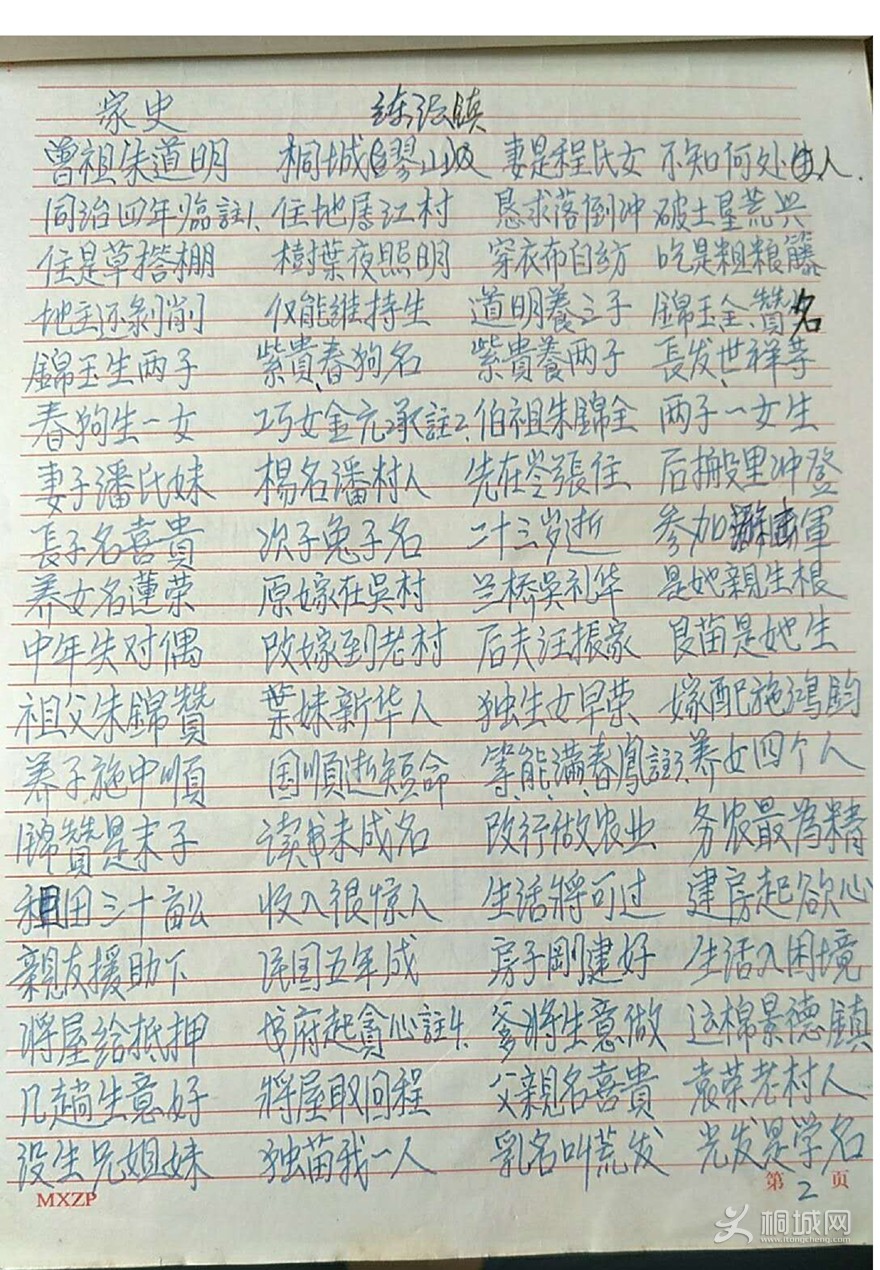 家史 练潭镇
曾祖朱道明 桐城(缪山)人 妻是程氏女 不知何处人.
同治四年临註1. 住地厝江村 恳求落倒冲 破土垦荒兴
住是草搭棚 樹葉夜照明 穿衣布自纺 吃是粗粮籐
地主还剥削 仅能維持生 道明養三子 錦玉、全、贊名
錦玉生两子 紫貴、春狗名 紫貴養两子 長发、世祥等
春狗生一女 巧女金元承註2. 伯祖朱錦全 两子一女生
妻子潘氏妹 楊名潘村人 先在苓張住 后搬里冲登
長子名喜貴 次子兔子名 二十三岁逝 参加軍
养女名蓮荣 原嫁在吳村 兰桥吳礼华 是她親生根
中年失对偶 改嫁到老村 后夫汪振家 良苗是她生
祖父朱錦贊 葉妹新华人 独生女早荣 嫁配施鴻鈞
养子施中順 国順逝短命 等、能、满、春、鳳註3. 养女四个人
錦贊是末子 读书未成名 改行做农业 务农最为精
租田三十亩 收入很惊人 生活將可过 建房起欲心
親友援助下 民国五年成 房子剛建好 生活入困境
將屋给抵押 府起貪心註4. 爹將生意做 运棉景德鎮
几趟生意好 將屋取回程 父親名喜貴 袁荣老村人
没生兄姐妹 独苗我一人 乳名叫荒发 光发是学名
MXZP 第 2 页
桐城网
www.itongcheng.com